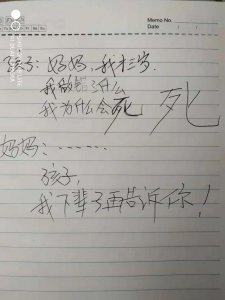 Memo No.
Date / /
孩子：妈妈，我才三岁.
我做错了什么
我为什么会死 死
妈妈：……
孩子，
我下辈子再告诉你！